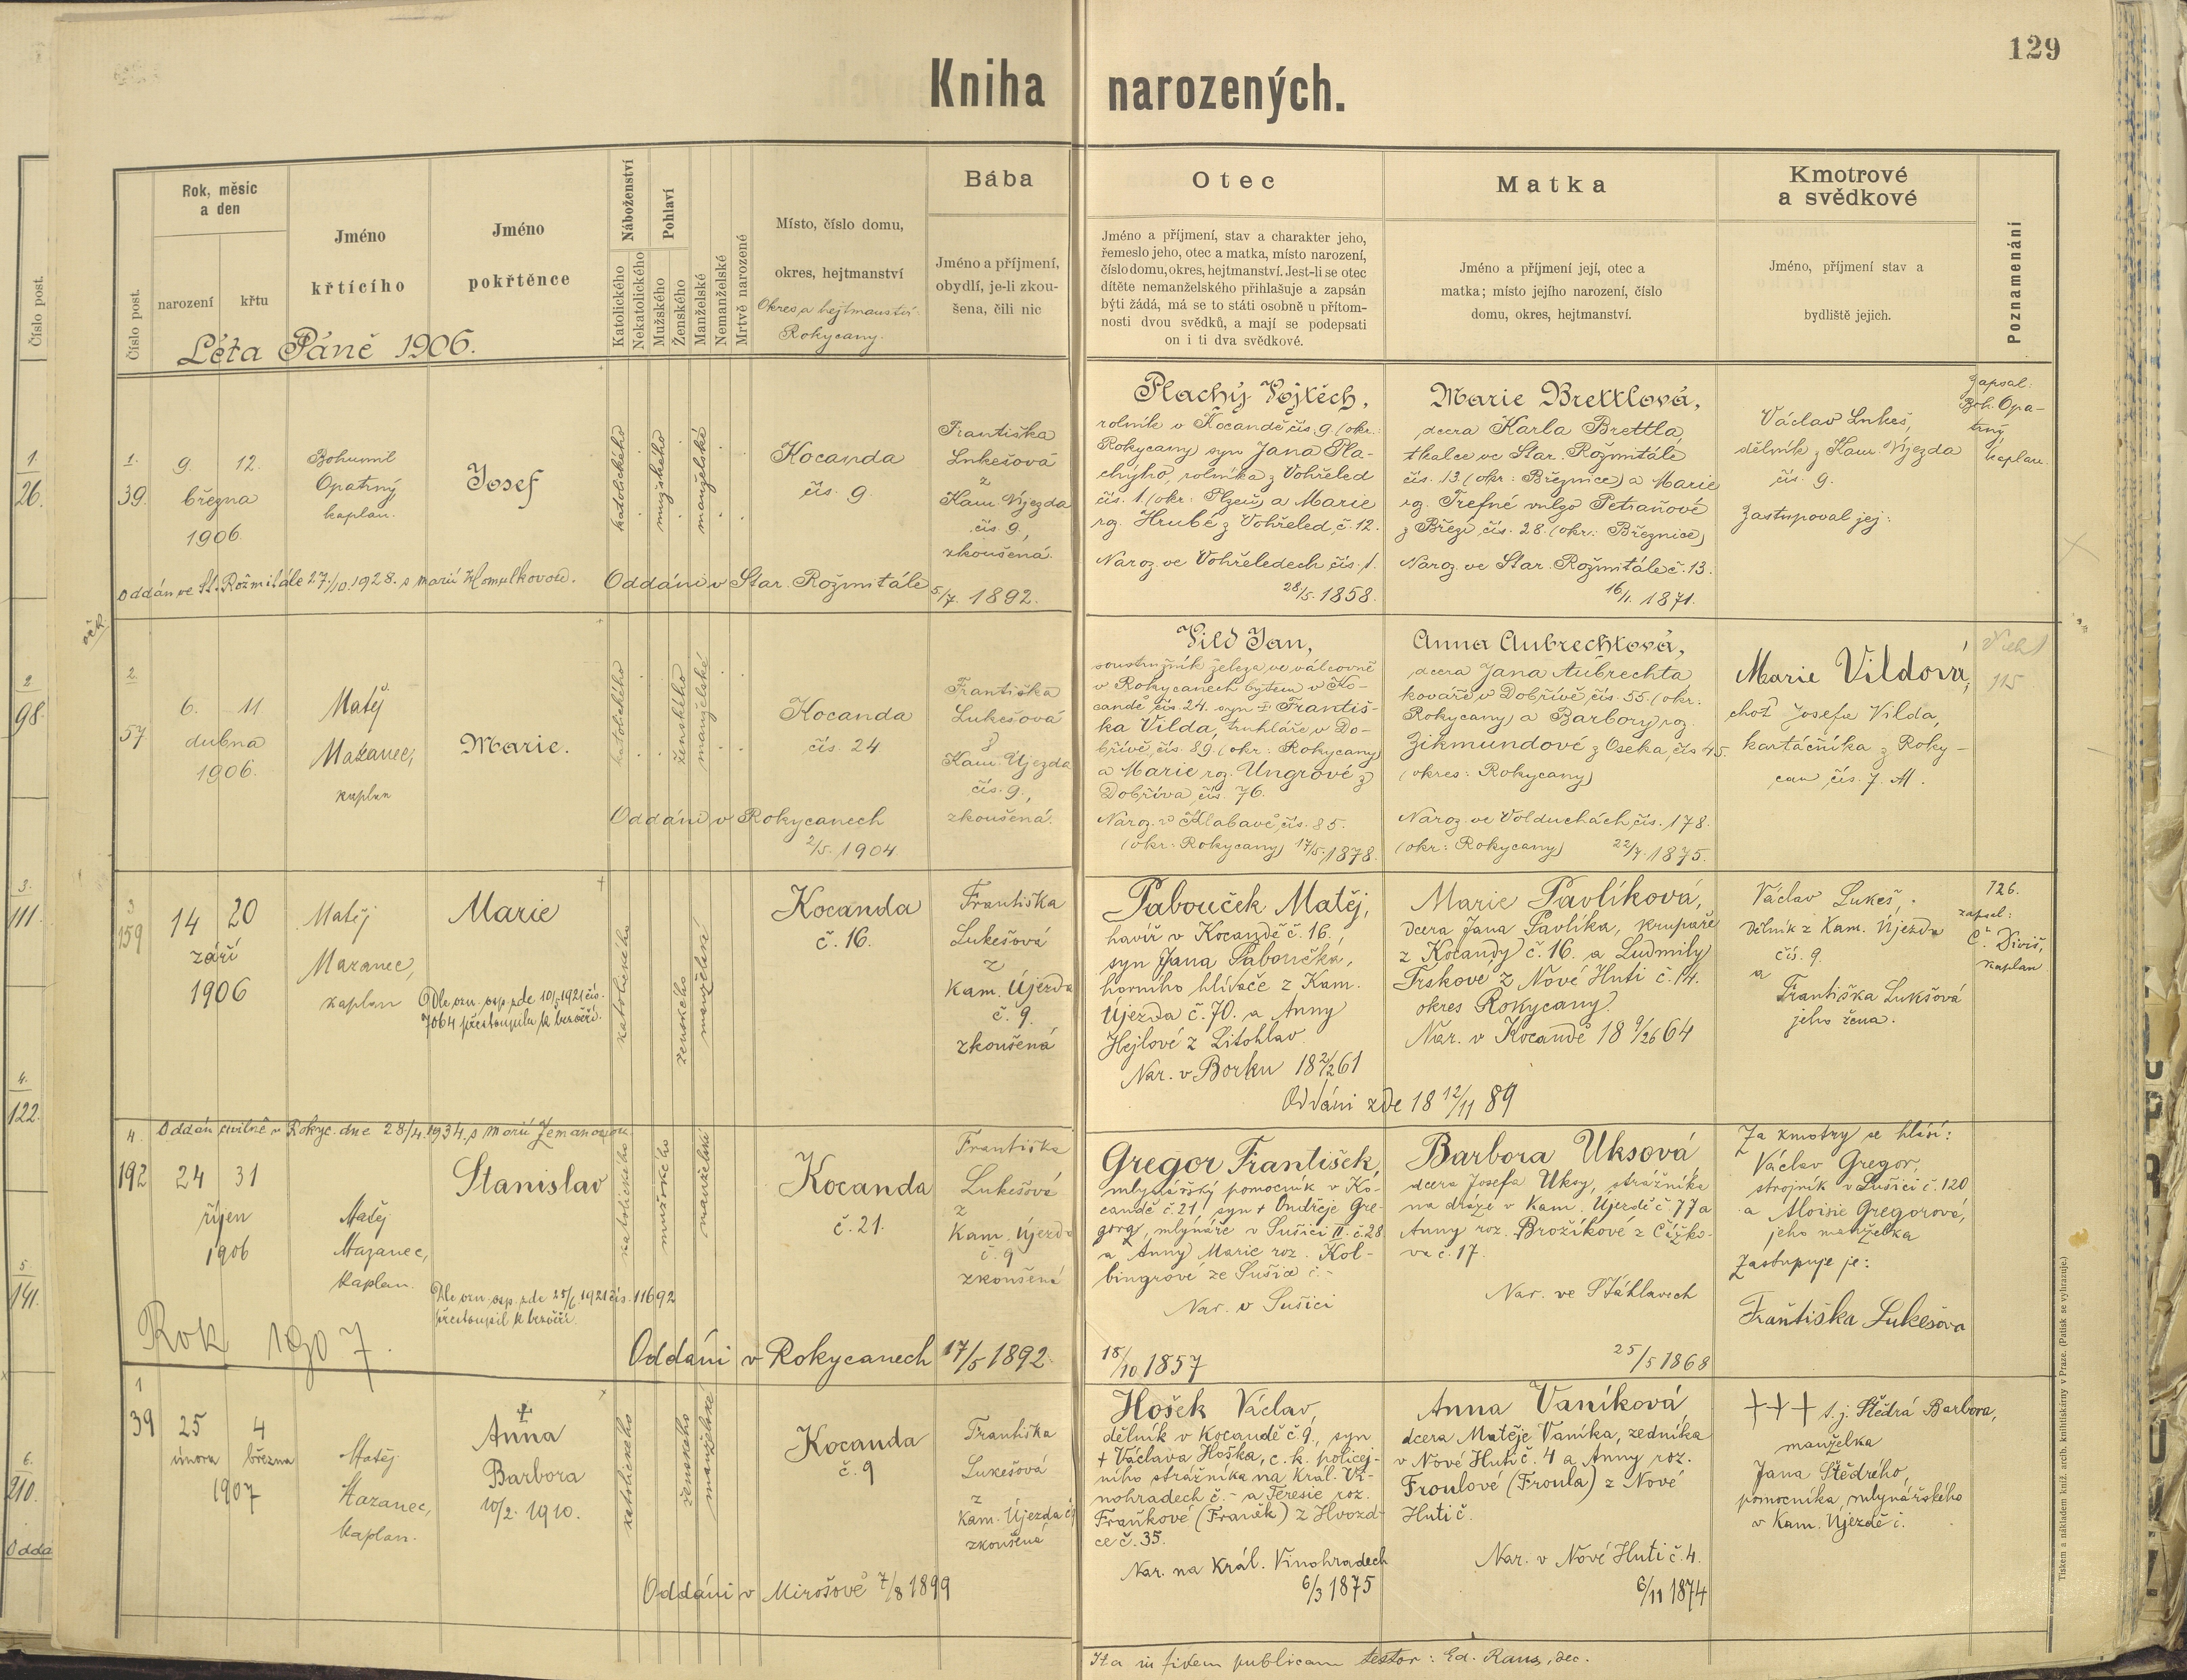 129
Kniha narozených.
Číslo post.
Rok, měsíc a den
narození
křtu
Jméno křtícího
Jméno pokřtěnce
Náboženství
Katolického
Nekatolického
Pohlaví
Mužského
Ženského
Manželské
Nemanželské
Mrtvě narozené
Místo, číslo domu,
okres, hejtmanství
Okres a hejtmanství
Rokycany.
Bába
Jméno a příjmení,
obydlí, je-li zkou-
šena, čili nic
Otec
Jméno a příjmení, stav a charakter jeho,
řemeslo jeho, otec a matka, místo narození,
číslo domu, okres, hejtmanství. Jest-li se otec
dítěte nemanželského přihlašuje a zapsán
býti žádá, má se to státi osobně u přítom-
nosti dvou svědků, a mají se podepsati
on i ti dva svědkové.
Matka
Jméno a příjmení její, otec a
matka; místo jejího narození, číslo
domu, okres, hejtmanství.
Kmotrové
a svědkové
Jméno, příjmení stav a
bydliště jejich.
Poznamenání
Číslo post.
1.
26.
2
98.
3.
111.
4.
122.
5.
141.
6.
210.
Odda
Léta Páně 1906.
1.
39.
9. 12.
března
1906.
Bohumil
Opatrný
kaplan.
Josef
katolického
mužského
manželské
Kocanda
čís. 9.
Františka
Lukešová
z
Kam. Újezda
čís. 9,
zkoušená.
Oddán ve St. Rožmitále 27./10. 1928. s Marií Homulkovou.
Oddáni v Star. Rožmitále 5/7. 1892.
Plachý Vojtěch,
rolník v Kocandě čís. 9. (okr.:
Rokycany) syn Jana Pla-
chýho, rolníka z Vohřeled
čís. 1. (okr: Plzeň) a Marie
rz. Hrubé z Vohřeled, č. 12.
Naroz. ve Vohřeledech čís. 1.
28/5. 1858.
Marie Brettlová,
dcera Karla Brettla,
tkalce ve Star. Rožmitále
čís. 13. (okr: Březnice) a Marie
rz. Trefné vulgo Petraňové
z Březí čís. 28. (okr: Březnice)
Naroz. ve Star. Rožmitále č. 13.
16/1. 1871.
Václav Lukeš,
dělník z Kam. Újezda
čís. 9.
Zastupoval jej:
Zapsal:
Boh. Opa-
trný,
kaplan.
2.
57
6. 11
dubna
1906.
Matěj
Mazanec,
kaplan
Marie.
katolického
ženského
manželské
Kocanda
čís. 24
Františka
Lukešová
z
Kam. Újezda
čís. 9.,
zkoušená.
Oddáni v Rokycanech
2/5. 1904.
Vild Jan,
soustružník železa ve válcovně
v Rokycanech bytem v Ko-
candě čís. 24. syn † Františ-
ka Vilda, truhláře v Do-
břívě, čís. 89. (okr: Rokycany)
a Marie rz. Ungrové z
Dobříva čís. 76.
Naroz. v Klabavě, čís. 85.
(okr: Rokycany) 17/5. 1878.
Anna Aubrechtová,
dcera Jana Aubrechta
kováře v Dobřívě, čís. 55. (okr:
Rokycany) a Barbory roz.
Zikmundové z Oseka, čís. 45.
(okres: Rokycany)
Naroz. ve Volduchách, čís. 178.
(okr: Rokycany) 22/7. 1875.
Marie Vildová,
choť Josefa Vilda,
kartáčníka z Roky-
can čís. 7. M.
115
3
159
14 20
září
1906
Matěj
Mazanec,
kaplan
Marie
Dle ozn. osp. zde 10/5. 1921 čís.
7064 přestoupila k bezvěří.
katolického
ženského
manželské
Kocanda
č. 16.
Františka
Lukešová
z
Kam. Újezda
č. 9.
zkoušená
Pabouček Matěj,
havíř v Kocandě č. 16.,
syn Jana Paboučka,
horního hlídače z Kam.
Újezda č. 70. a Anny
Hejlové z Litohlav.
Nar. v Borku 18 2/2 61
Marie Pavlíková,
dcera Jana Pavlíka, krupaře
z Kocandy č. 16. a Ludmily
Trskové z Nové Huti č. 14.
okres Rokycany.
Nar. v Kocandě 18 9/26 64
Oddáni zde 18 12/11 89
Václav Lukeš,
dělník z Kam. Újezda
čís. 9.
a
Františka Lukšová
jeho žena.
126.
zapsal:
Č. Diviš,
kaplan
4.
192
Oddán civilně v Rokyc. dne 28/4. 1934. s Marií Zemanovou.
24 31
říjen
1906
Matěj
Mazanec,
kaplan.
Stanislav
Dle ozn. osp. zde 25/6. 1921 čís. 11692
přestoupil k bezvěří.
katolického
mužského
manželské
Kocanda
č. 21.
Františka
Lukešová
z
Kam. Újezda
č. 9
zkoušená
Oddáni v Rokycanech 17/5 1892.
Gregor František,
mlynářský pomocník v Ko-
candě č. 21, syn † Ondřeje Gre-
gora, mlynáře v Sušici II. č. 28
a Anny Marie roz. Kol-
bingrové ze Sušice č. -
Nar. v Sušici
18/10 1857
Barbora Uksová
dcera Josefa Uksy, strážníka
na dráze v Kam. Újezdě č. 77 a
Anny roz. Brožíkové z Čížko-
va č. 17.
Nar. ve Štáhlavech
25/5 1868
Za kmotry se hlásí:
Václav Gregor,
strojník v Sušici č. 120
a Aloisie Gregorová,
jeho manželka
Zastupuje je:
Františka Lukešova
Rok 1907.
1
39
25 4
února března
1907
Matěj
Mazanec,
kaplan.
†
Anna
Barbora
10/2. 1910.
katolického
ženského
manželské
Kocanda
č. 9
Františka
Lukešová
z
Kam. Újezda č 9
zkoušená
Oddáni v Mirošově 7/8 1899
Hošek Václav,
dělník v Kocandě č. 9., syn
† Václava Hoška, c. k. policej-
ního strážníka na Král. Vi-
nohradech č. - a Teresie roz.
Fraňkové (Franěk) z Hvozd-
ce č. 35.
Nar. na Král. Vinohradech
6/3 1875
Anna Vaníková,
dcera Matěje Vaníka, zedníka
v Nové Huti č. 4 a Anny roz.
Froulové (Froula) z Nové
Huti č.
Nar. v Nové Huti č. 4.
6/11 1874
+++ t. j. Štědrá Barbora,
manželka
Jana Štědrého,
pomocníka mlynářského
v Kam. Újezdě č.
Ita in fidem publicam testor: Ed. Raus, dec.
Tiskem a nákladem kníž. arcib. knihtiskárny v Praze. (Patisk se vyhrazuje.)